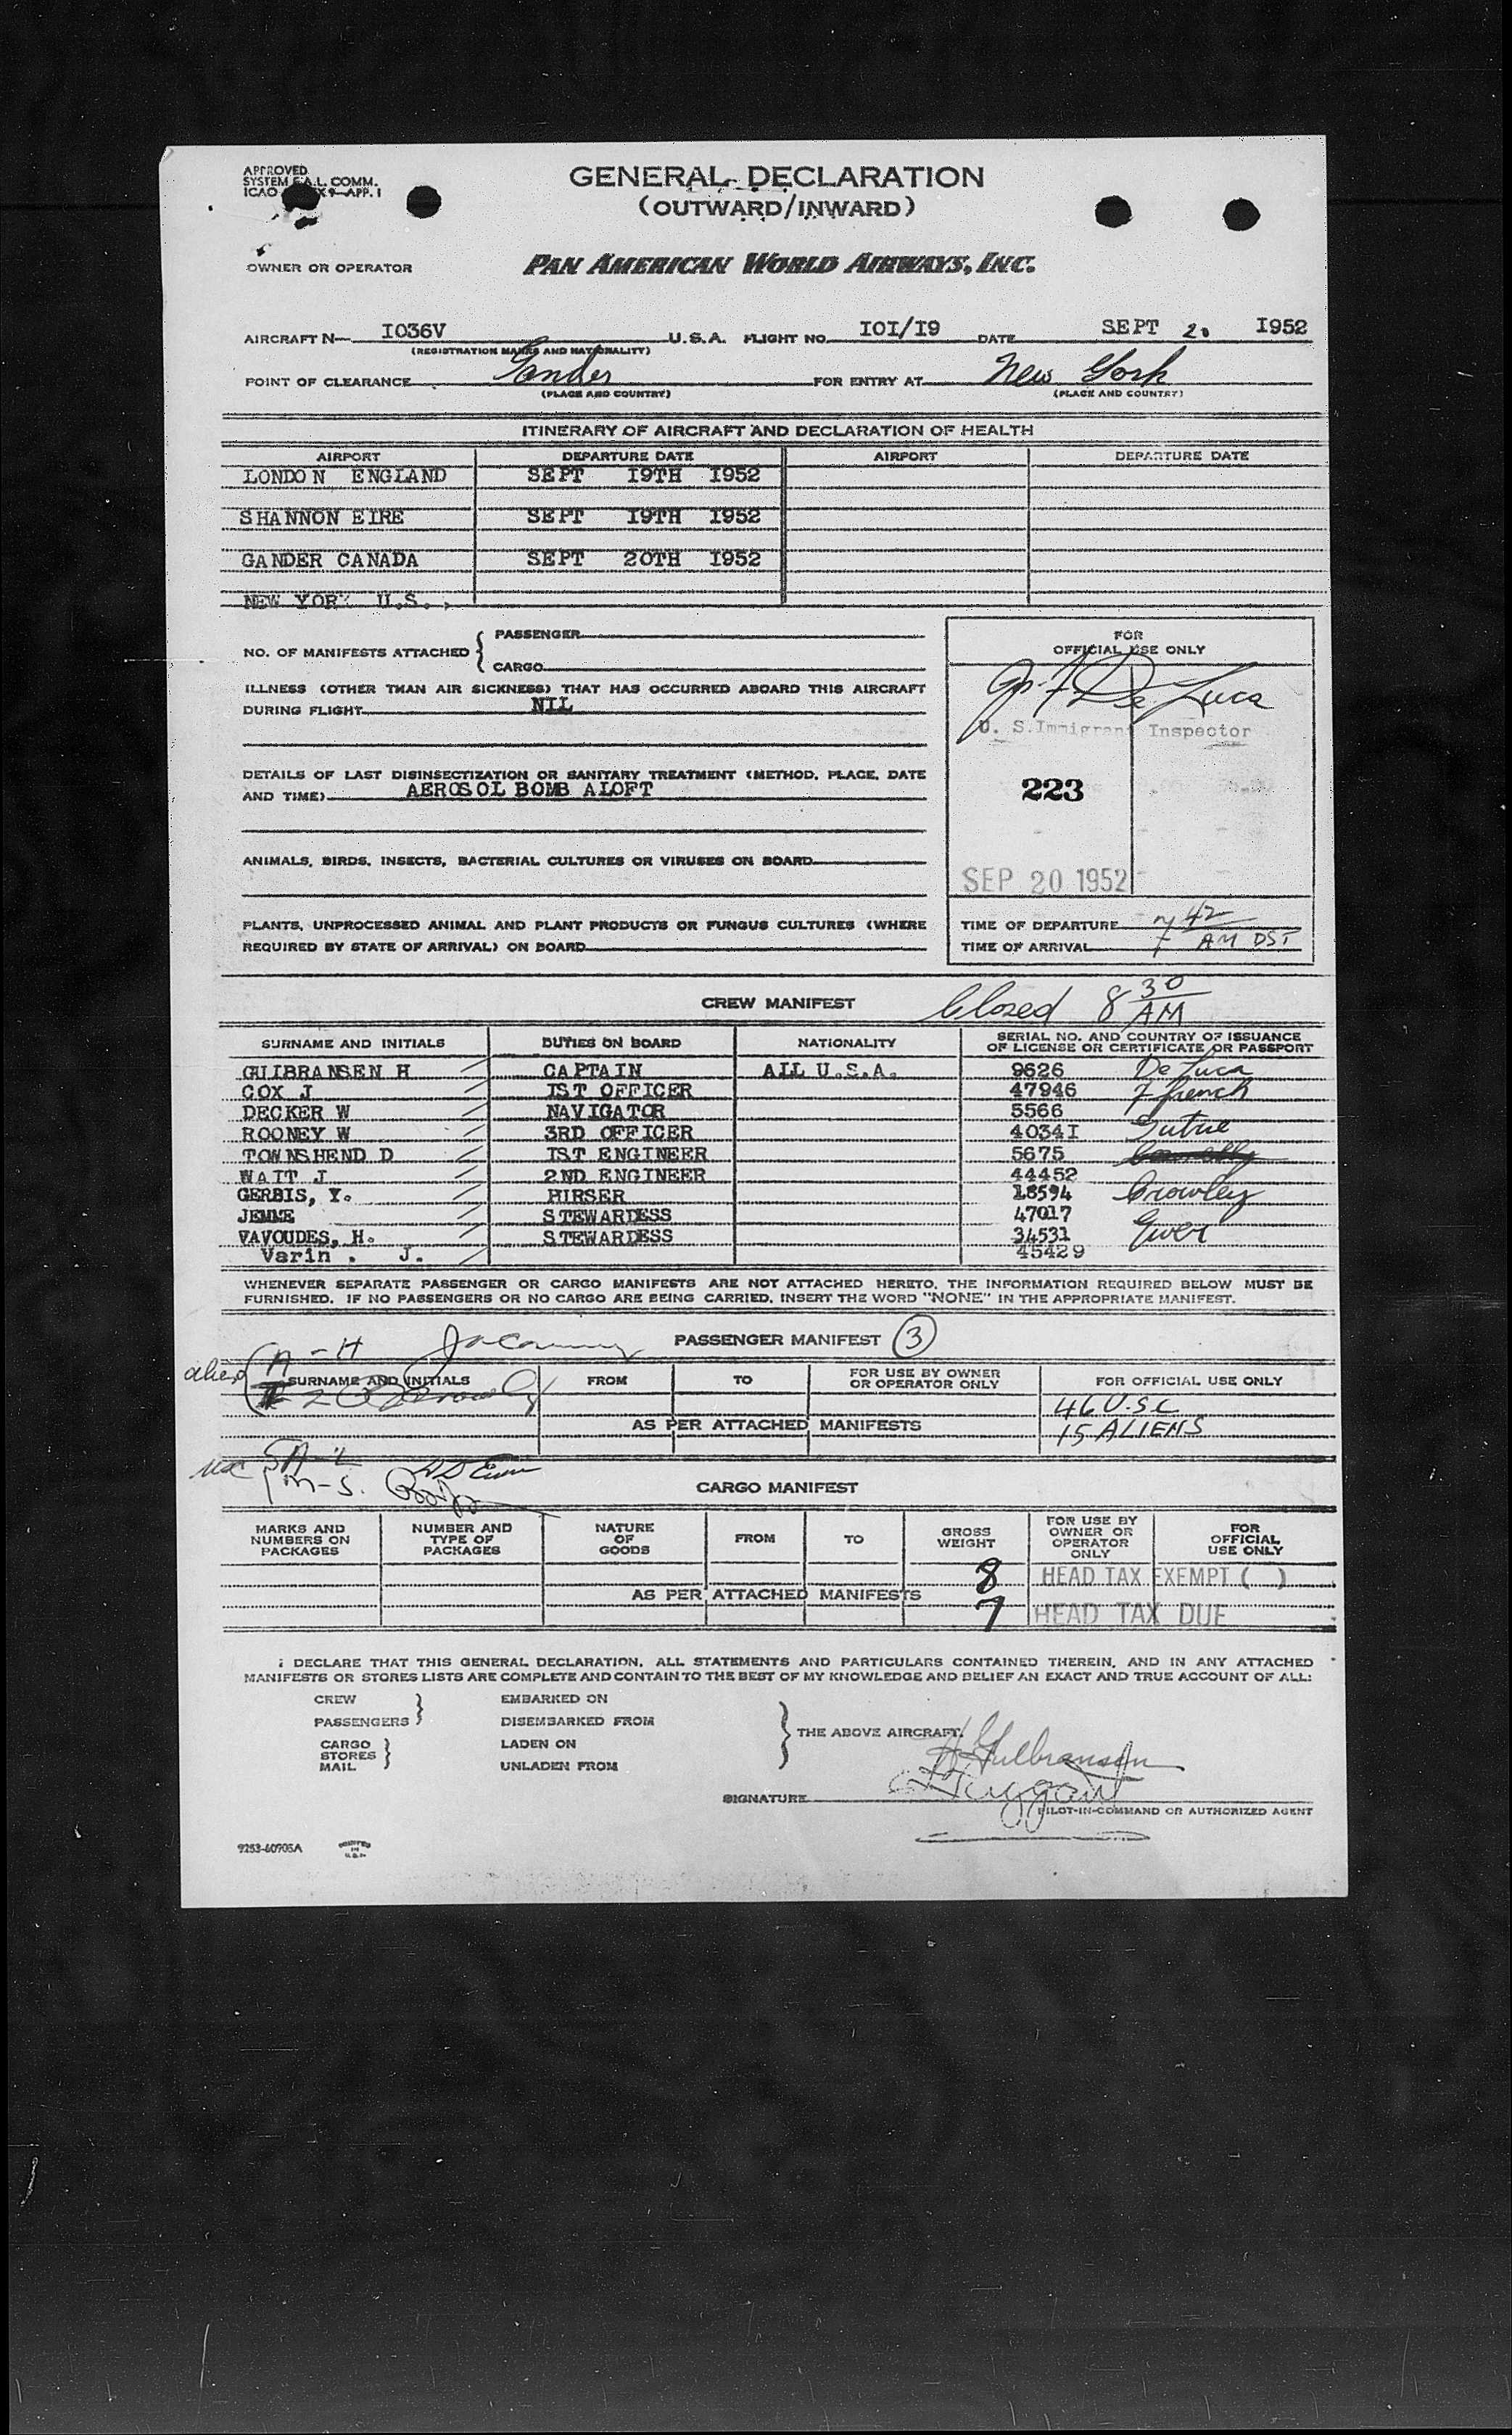 APPROVED
SYSTEM F.A.L. COMM.
ICAO X 9—APP. 1
GENERAL DECLARATION
(OUTWARD/INWARD)
OWNER OR OPERATOR PAN AMERICAN WORLD AIRWAYS, INC.
AIRCRAFT N— I036V U.S.A. FLIGHT NO. IOI/I9 DATE SEPT 20 I952
(REGISTRATION MARKS AND NATIONALITY)
POINT OF CLEARANCE Gander FOR ENTRY AT New York
(PLACE AND COUNTRY) (PLACE AND COUNTRY)
ITINERARY OF AIRCRAFT AND DECLARATION OF HEALTH
AIRPORT DEPARTURE DATE AIRPORT DEPARTURE DATE
LONDON ENGLAND SEPT I9TH I952
SHANNON EIRE SEPT I9TH I952
GANDER CANADA SEPT 20TH I952
NEW YORK U.S.
NO. OF MANIFESTS ATTACHED { PASSENGER
CARGO
ILLNESS (OTHER THAN AIR SICKNESS) THAT HAS OCCURRED ABOARD THIS AIRCRAFT
DURING FLIGHT NIL
DETAILS OF LAST DISINSECTIZATION OR SANITARY TREATMENT (METHOD, PLACE, DATE
AND TIME) AEROSOL BOMB ALOFT
ANIMALS, BIRDS, INSECTS, BACTERIAL CULTURES OR VIRUSES ON BOARD
PLANTS, UNPROCESSED ANIMAL AND PLANT PRODUCTS OR FUNGUS CULTURES (WHERE
REQUIRED BY STATE OF ARRIVAL) ON BOARD
FOR
OFFICIAL USE ONLY
De Luca
U. S. Immigrant Inspector
223
SEP 20 1952
TIME OF DEPARTURE 7 42
TIME OF ARRIVAL AM DST
CREW MANIFEST Closed 8 30 AM
SURNAME AND INITIALS DUTIES ON BOARD NATIONALITY SERIAL NO. AND COUNTRY OF ISSUANCE
OF LICENSE OR CERTIFICATE OR PASSPORT
GULBRANSEN H CAPTAIN ALL U.S.A. 9626 De Luca
COX J IST OFFICER 47946 French
DECKER W NAVIGATOR 5566
ROONEY W 3RD OFFICER 4034I
TOWNSHEND D IST ENGINEER 5675
WAIT J 2ND ENGINEER 44452
GERBIS, Y. PURSER 18594 Crowley
JEMNE STEWARDESS 47017
VAVOUDES, H. STEWARDESS 34531 Ewer
Varin . J. 45429
WHENEVER SEPARATE PASSENGER OR CARGO MANIFESTS ARE NOT ATTACHED HERETO, THE INFORMATION REQUIRED BELOW MUST BE
FURNISHED. IF NO PASSENGERS OR NO CARGO ARE BEING CARRIED, INSERT THE WORD "NONE" IN THE APPROPRIATE MANIFEST.
A - H PASSENGER MANIFEST 3
alien
SURNAME AND INITIALS FROM TO FOR USE BY OWNER
OR OPERATOR ONLY FOR OFFICIAL USE ONLY
46 U.S.C
AS PER ATTACHED MANIFESTS 15 ALIENS
A-L
M-S.
CARGO MANIFEST
MARKS AND
NUMBERS ON
PACKAGES NUMBER AND
TYPE OF
PACKAGES NATURE
OF
GOODS FROM TO GROSS
WEIGHT FOR USE BY
OWNER OR
OPERATOR
ONLY FOR
OFFICIAL
USE ONLY
8 HEAD TAX EXEMPT ( )
AS PER ATTACHED MANIFESTS
7 HEAD TAX DUE
I DECLARE THAT THIS GENERAL DECLARATION, ALL STATEMENTS AND PARTICULARS CONTAINED THEREIN, AND IN ANY ATTACHED
MANIFESTS OR STORES LISTS ARE COMPLETE AND CONTAIN TO THE BEST OF MY KNOWLEDGE AND BELIEF AN EXACT AND TRUE ACCOUNT OF ALL:
CREW EMBARKED ON
PASSENGERS } DISEMBARKED FROM
} THE ABOVE AIRCRAFT.
CARGO LADEN ON
STORES }
MAIL UNLADEN FROM
H Gulbransen
SIGNATURE
PILOT-IN-COMMAND OR AUTHORIZED AGENT
9253-60905A PRINTED
IN
U.S.A.